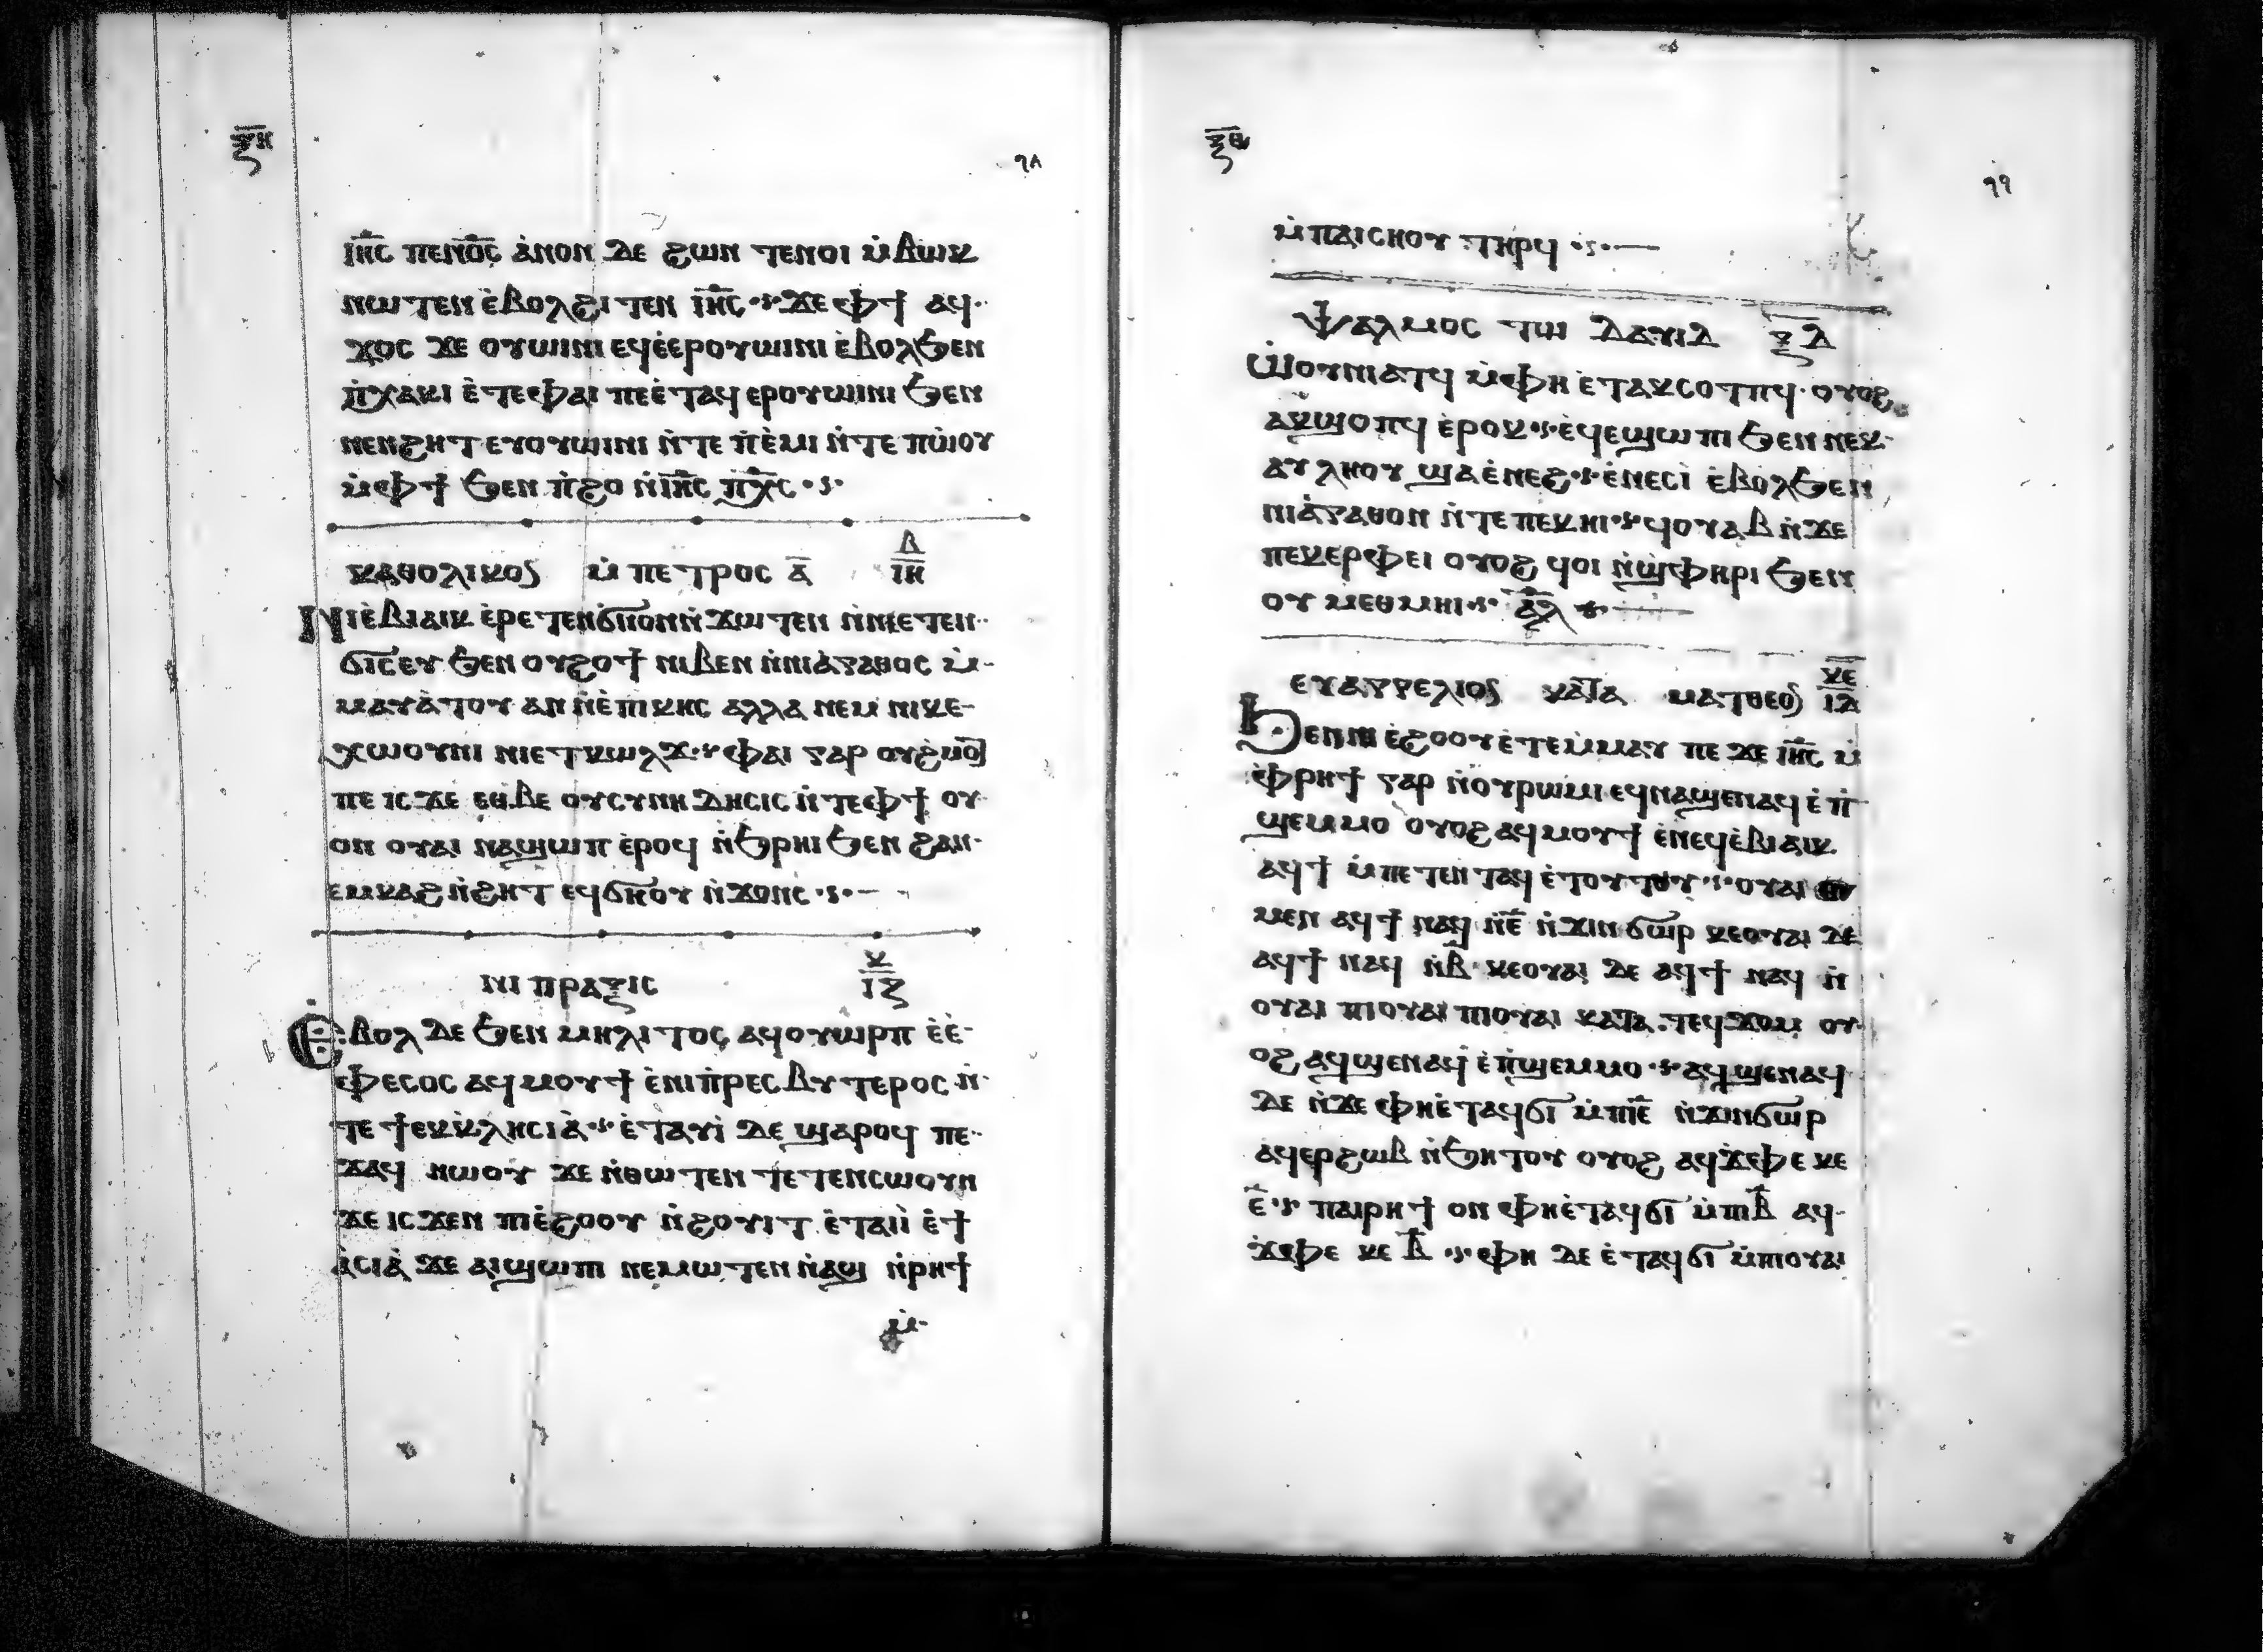 ⲝ̅ⲏ̅
ⲓⲏ̅ⲥ̅ ⲡⲉⲛⲟ̅ⲥ̅ ⲁ̀ⲛⲟⲛ ⲇⲉ ϩⲱⲛ ⲧⲉⲛⲟⲓ ⲙ̀ⲃⲱⲕ
ⲛⲱⲧⲉⲛ ⲉ̀ⲃⲟⲗϩⲓⲧⲉⲛ ⲓⲏ̅ⲥ̅ ϫⲉ ⲫϯ ⲁϥ
ϫⲟⲥ ϫⲉ ⲟⲩⲱⲓⲛⲓ ⲉϥⲉ̀ⲉⲣⲟⲩⲱⲓⲛⲓ ⲉ̀ⲃⲟⲗϧⲉⲛ
ⲡ̀ⲭⲁⲕⲓ ⲉ̀ⲧⲉⲫⲁⲓ ⲡⲉⲉ̀ⲧⲁϥⲉⲣⲟⲩⲱⲓⲛⲓ ϧⲉⲛ
ⲛⲉⲛϩⲏⲧ ⲉⲩⲟⲩⲱⲓⲛⲓ ⲛ̀ⲧⲉ ⲡ̀ⲉ̀ⲙⲓ ⲛ̀ⲧⲉ ⲡⲱ̀ⲟⲩ
ⲙ̀ⲫϯ ϧⲉⲛ ⲡ̀ϩⲟ ⲛ̀ⲓⲏ̅ⲥ̅ ⲡⲭ̅ⲥ̅
ⲕⲁⲑⲟⲗⲓⲕⲟⲥ ⲙ̀ⲡⲉⲧⲣⲟⲥ ⲁ̅ ⲃ̅ ⲓⲏ̅
Ⲛⲓⲉ̀ⲃⲓⲁⲓⲕ ⲉ̀ⲣⲉⲧⲉⲛϭⲛⲟⲛⲛ̀ϫⲱⲧⲉⲛ ⲛ̀ⲛⲉⲧⲉⲛ
ϭⲓⲥⲉⲩ ϧⲉⲛ ⲟⲩϩⲟϯ ⲛⲓⲃⲉⲛ ⲛ̀ⲛⲓⲁ̀ⲅⲁⲑⲟⲥ ⲙ̀
ⲙⲁⲩⲁ̀ⲧⲟⲩ ⲁⲛ ⲛ̀ⲉ̀ⲡⲓⲕⲏⲥ ⲁⲗⲗⲁ ⲛⲉⲙ ⲛⲓⲕⲉ
ⲭⲱⲟⲩⲛⲓ ⲛⲓⲉⲧⲕⲱⲗϫ ⲫⲁⲓ ⲅⲁⲣ ⲟⲩϩ̀ⲙⲟⲧ
ⲡⲉ ⲓⲥϫⲉ ⲉⲑⲃⲉ ⲟⲩⲥⲩⲛⲏⲇⲏⲥⲓⲥ ⲛ̀ⲧⲉⲫϯ ⲟⲩ
ⲟⲛ ⲟⲩⲁⲓ ⲛⲁϣⲱⲡ ⲉ̀ⲣⲟϥ ⲛ̀ϧⲣⲏⲓ ϧⲉⲛ ϩⲁⲛ
ⲉⲙⲕⲁϩ ⲛ̀ϩⲏⲧ ⲉϥϭⲏⲟⲩ ⲛ̀ϫⲟⲛⲥ
ⲛⲓⲡⲣⲁⲝⲓⲥ ⲕ̅ ⲓⲍ
Ⲉ̀ⲃⲟⲗ ⲇⲉ ϧⲉⲛ ⲙⲏⲗⲓⲧⲟⲥ ⲁϥⲟⲩⲱⲣⲡ ⲉ̀ⲉ̀
ⲫⲉⲥⲟⲥ ⲁϥⲙⲟⲩϯ ⲉ̀ⲛⲓⲡ̀ⲣⲉⲥⲃⲩⲧⲉⲣⲟⲥ ⲛ̀
ⲧⲉ ϯⲉⲕⲕ̀ⲗⲏⲥⲓⲁ̀ ⲉ̀ⲧⲁⲩⲓ̀ ⲇⲉ ϣⲁⲣⲟϥ ⲡⲉ
ϫⲁϥ ⲛⲱⲟⲩ ϫⲉ ⲛ̀ⲑⲱⲧⲉⲛ ⲧⲉⲧⲉⲛⲥⲱⲟⲩⲛ
ϫⲉ ⲓⲥϫⲉⲛ ⲡⲓⲉ̀ϩⲟⲟⲩ ⲛ̀ϩⲟⲩⲓⲧ ⲉ̀ⲧⲁⲓⲓ̀ ⲉ̀ϯ
ⲁ̀ⲥⲓⲁ̀ ϫⲉ ⲁⲓϣⲱⲡⲓ ⲛⲉⲙⲱⲧⲉⲛ ⲛ̀ⲁϣ ⲛ̀ⲣⲏϯ
ⲙ̀
ⲝ̅ⲑ̅
ⲙ̀ⲡⲁⲓⲥⲏⲟⲩ ⲧⲏⲣϥ
Ⲯⲁⲗⲙⲟⲥ ⲧⲱ ⲇⲁⲩⲓⲇ ⲝ̅ⲇ̅
Ⲱ̀ⲟⲩⲛⲓⲁⲧϥ ⲙ̀ⲫⲏ ⲉ̀ⲧⲁⲕⲥⲟⲧⲡϥ ⲟⲩⲟϩ
ⲁⲕϣⲟⲡϥ ⲉ̀ⲣⲟⲕ ⲉ̀ϥⲉϣⲱⲡⲓ ϧⲉⲛ ⲛⲉⲕ
ⲁⲩⲗⲏⲟⲩ ϣⲁⲉ̀ⲛⲉϩ ⲉ̀ⲛⲉⲥⲓ̀ ⲉ̀ⲃⲟⲗϧⲉⲛ
ⲛⲓⲁ̀ⲅⲁⲑⲟⲛ ⲛ̀ⲧⲉ ⲡⲉⲕⲏⲓ ϥⲟⲩⲁⲃ ⲛ̀ϫⲉ
ⲡⲉⲕⲉⲣⲫⲉⲓ ⲟⲩⲟϩ ϥⲟⲓ ⲛ̀ϣⲫⲏⲣⲓ ϧⲉⲛ
ⲟⲩ ⲙⲉⲑⲙⲏⲓ ⲁ̅ⲗ̅
ⲉⲩⲁⲅⲅⲉⲗⲓⲟⲥ ⲕⲁⲧⲁ ⲙⲁⲧⲑⲉⲟⲥ ⲕⲉ̅ ⲓⲇ̅
Ϧⲉⲛ ⲛⲓ ⲉ̀ϩⲟⲟⲩ ⲉ̀ⲧⲉⲙ̀ⲙⲁⲩ ⲡⲉ ϫⲉ ⲓⲏ̅ⲥ̅ ⲙ̀
ⲫ̀ⲣⲏϯ ⲅⲁⲣ ⲛ̀ⲟⲩⲣⲱⲙⲓ ⲉϥⲛⲁϣⲉⲛⲁϥ ⲉ̀ⲡ̀
ϣⲉⲙⲙⲟ ⲟⲩⲟϩ ⲁϥⲙⲟⲩϯ ⲉ̀ⲛⲉϥⲉ̀ⲃⲓⲁⲓⲕ
ⲁϥϯ ⲙ̀ⲡⲉⲧⲉⲛⲧⲁϥ ⲉ̀ⲧⲟⲩⲧⲟⲩ ⲟⲩⲁⲓ
ⲙⲉⲛ ⲁϥϯ ⲛⲁϥ ⲛ̀ⲉ̅ ⲛ̀ϫⲓⲛϭⲱⲣ ⲕⲉⲟⲩⲁⲓ ⲇⲉ
ⲁϥϯ ⲛⲁϥ ⲛ̀ⲃ̅ ⲕⲉⲟⲩⲁⲓ ⲇⲉ ⲁϥϯ ⲛⲁϥ ⲛ̀
ⲟⲩⲁⲓ ⲡⲓⲟⲩⲁⲓ ⲡⲓⲟⲩⲁⲓ ⲕⲁⲧⲁ ⲧⲉϥϫⲟⲙ ⲟⲩ
ⲟϩ ⲁϥϣⲉⲛⲁϥ ⲉ̀ⲡ̀ϣⲉⲙⲙⲟ ⲁϥϣⲉⲛⲁϥ
ⲇⲉ ⲛ̀ϫⲉ ⲫⲏⲉ̀ⲧⲁϥϭⲓ ⲙ̀ⲡⲓⲉ̅ ⲛ̀ϫⲓⲛϭⲱⲣ
ⲁϥⲉⲣϩⲱⲃ ⲛ̀ϧⲏⲧⲟⲩ ⲟⲩⲟϩ ⲁϥϫⲉⲫⲉ ⲕⲉ
ⲉ̅ ⲡⲁⲓⲣⲏϯ ⲟⲛ ⲫⲏⲉ̀ⲧⲁϥϭⲓ ⲙ̀ⲡⲓⲃ̅ ⲁϥ
ϫⲉⲫⲉ ⲕⲉ ⲃ̅ ⲫⲏ ⲇⲉ ⲉ̀ⲧⲁϥϭⲓ ⲙ̀ⲡⲓⲟⲩⲁⲓ